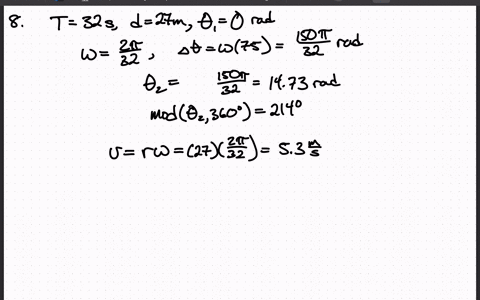 8. T = 32 s, d = 27m, θ₁ = 0 rad
ω = 2π/32, Δθ = ω(75) = 150π/32 rad
θ₂ = 150π/32 = 14.73 rad
mod(θ₂, 360°) = 214°
v = rω = (27)(2π/32) = 5.3 m/s